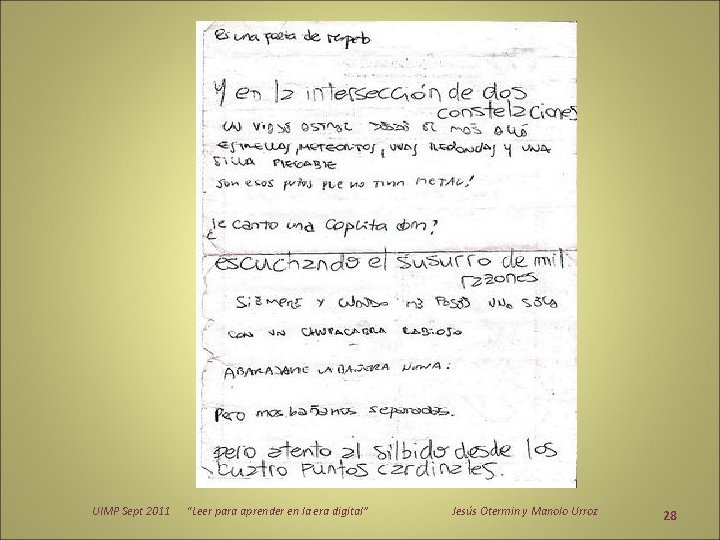 es una falta de respeto
Y en la intersección de dos
constelaciones
UN VIAJE ASTRAL DESDE EL MÁS ALLÁ
ESTRELLAS, METEORITOS, UVAS REDONDAS Y UNA
SILLA PLEGABLE
son esos putos que no tiran METAL!
¿le canto una coplita don?
escuchando el susurro de mil
razones
SIEMPRE Y CUANDO ME PASES UNA SECA
CON UN CHUPACABRA RABIOSO
ABARAJAME LA BAÑERA NENA.
Pero nos bañamos separados.
pero atento al silbido desde los
cuatro puntos cardinales.
UIMP Sept 2011 “Leer para aprender en la era digital” Jesús Otermin y Manolo Urroz 28